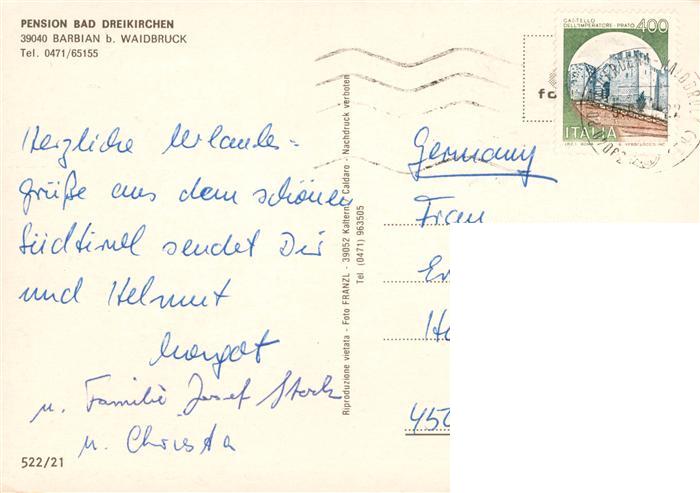 PENSION BAD DREIKIRCHEN
39040 BARBIAN b. WAIDBRUCK
Tel. 0471/65155
Herzliche Urlaubs=
grüße aus dem schönen
Südtirol sendet Dir
und Helmut
Margot
u. Familie Josef Stock
u. Christa
522/21
Riproduzione vietata - Foto FRANZL - 39052 Kaltern - Caldaro - Nachdruck verboten
Tel (0471) 963505
CASTELLO
DELL'IMPERATORE - PRATO 400
ITALIA
Germany
Frau